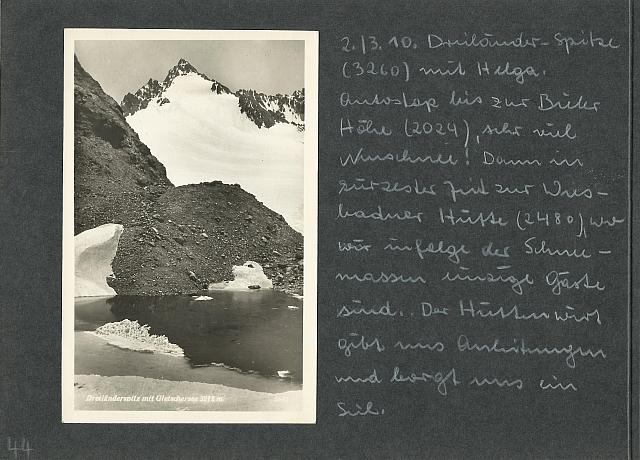 2./3. 10. Dreiländer-Spitze
(3260) mit Helga.
Autostop bis zur Bieler
Höhe (2024), sehr viel
Neuschnee! Dann in
kürzester Zeit zur Wies-
badner Hütte (2480), wo
wir infolge der Schnee-
massen einzige Gäste
sind.. Der Hüttenwirt
gibt uns Anleitungen
und borgt uns ein
Seil.
Dreiländerspitz mit Gletschersee 3212 m
44